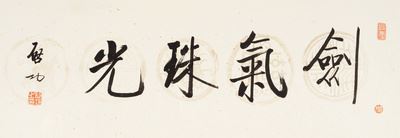 劍氣珠光
啟功